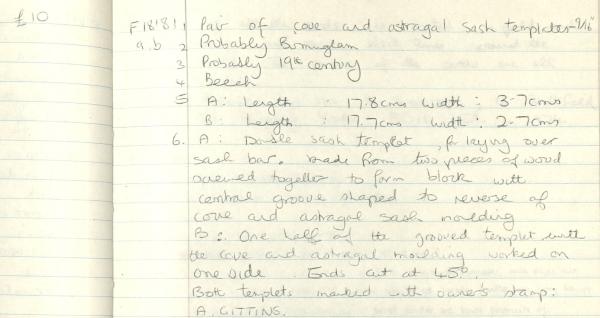 £10
F18'81 1 Pair of cove and astragal sash templates - 9/16"
a.b 2 Probably Birmingham
3 Probably 19th century
4 Beech
5 A: Length : 17.8cms width : 3.7cms
B: Length : 17.7cms width : 2.7cms
6. A: Double sash templet, for laying over
sash bar. Made from two pieces of wood
screwed together to form block with
central groove shaped to reverse of
cove and astragal sash moulding
B: One half of the grooved templet with
the cove and astragal moulding worked on
one side. Ends cut at 45°.
Both templets marked with owner's stamp:
A. GITTINS.